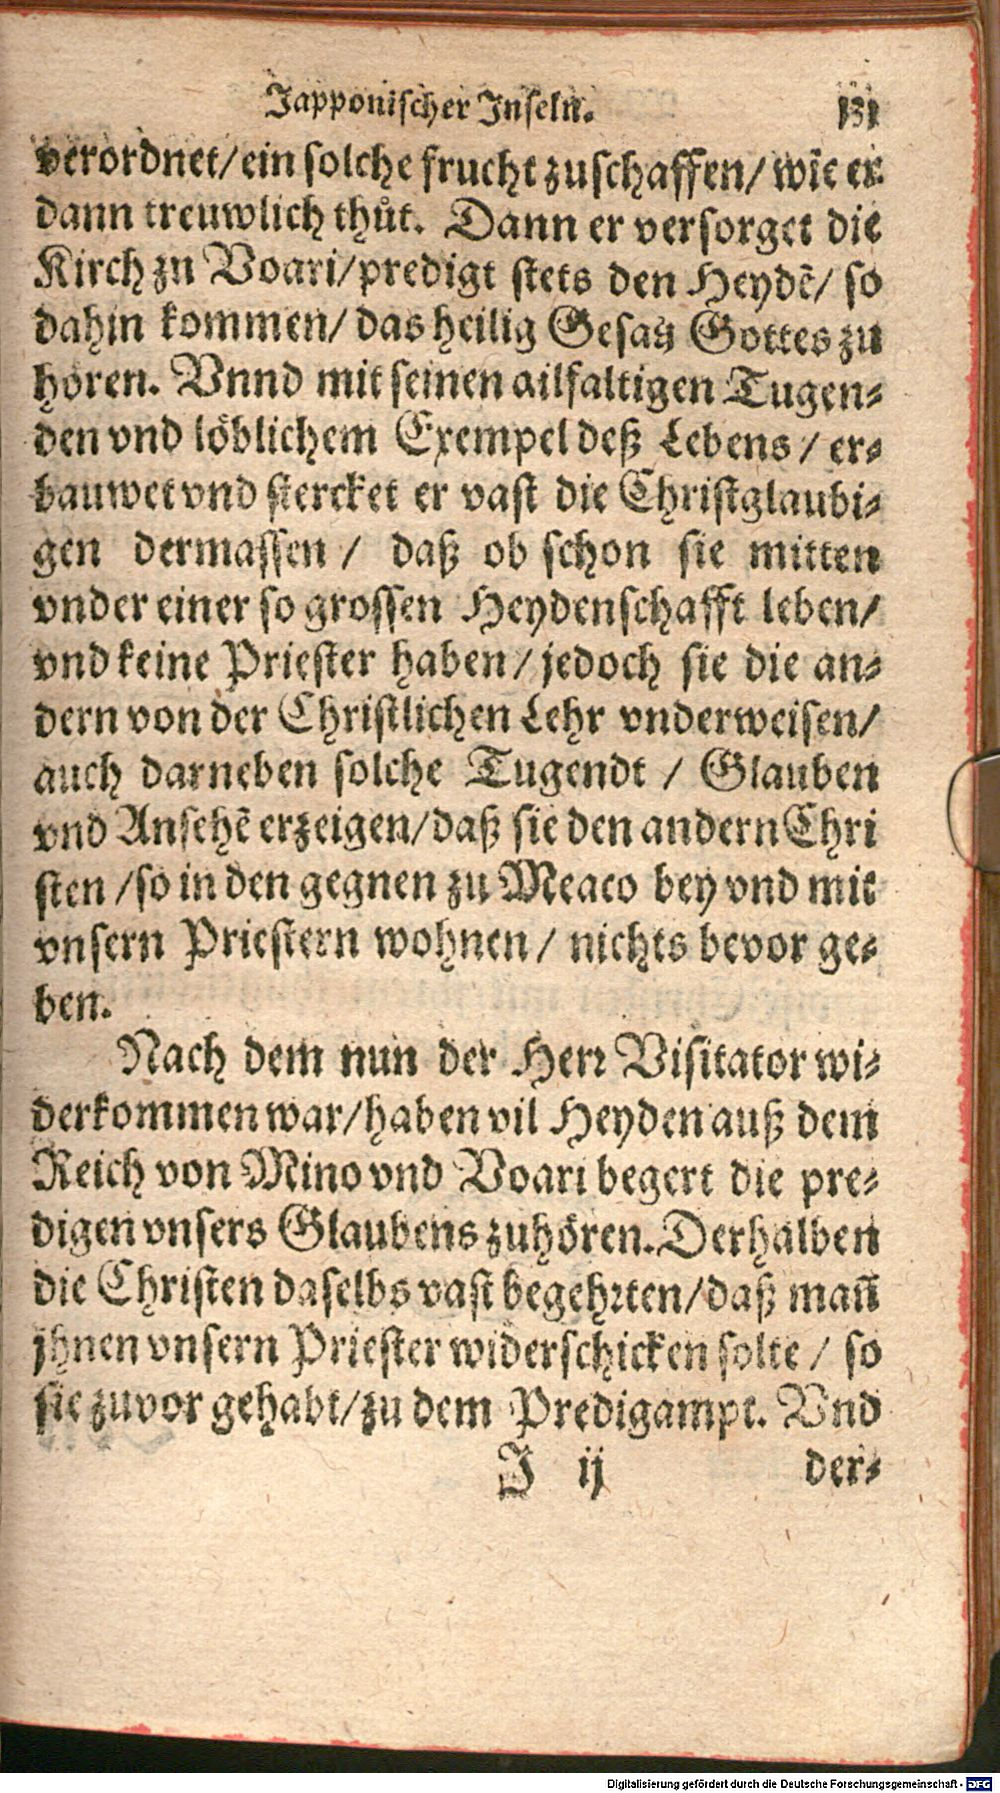 Japponischer Inseln. 131
verordnet/ein solche frucht zuschaffen/ wie er
dann treuwlich thůt. Dann er versorget die
Kirch zu Voari/predigt stets den Heydẽ/ so
dahin kommen/ das heilig Gesatz Gottes zu
hören. Vnnd mit seinen ailfaltigen Tugen-
den vnd löblichem Exempel deß Lebens / er-
bauwet vnd stercket er vast die Christglaubi-
gen dermassen / daß ob schon sie mitten
vnder einer so grossen Heydenschafft leben/
vnd keine Priester haben/ jedoch sie die an-
dern von der Christlichen Lehr vnderweisen/
auch darneben solche Tugendt / Glauben
vnd Ansehẽ erzeigen/daß sie den andern Chri
sten /so in den gegnen zu Meaco bey vnd mit
vnsern Priestern wohnen/ nichts bevor ge-
ben.
Nach dem nun der Herr Visitator wi-
derkommen war/haben vil Heyden auß dem
Reich von Mino vnd Voari begert die pre-
digen vnsers Glaubens zuhören. Derhalben
die Christen daselbs vast begehrten/daß mañ
jhnen vnsern Priester widerschicken solte / so
sie zuvor gehabt/zu dem Predigampt. Vnd
J ij der-
Digitalisierung gefördert durch die Deutsche Forschungsgemeinschaft - DFG